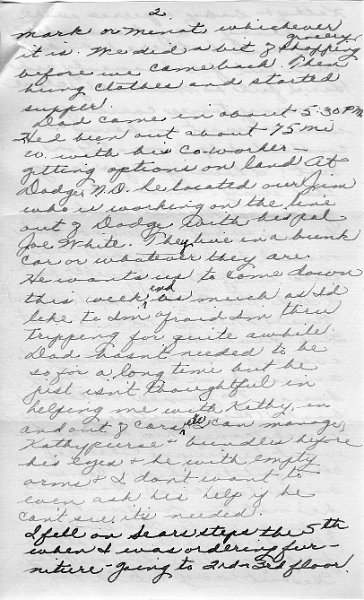 2.
Mark or Menot whichever
it is. We did a bit of grocery shopping
before we came back. Then
hung clothes and started
supper.
Dad came in about 5:30 PM
Had been out about 75 mi
W. with his co-worker -
getting options on land at
Dodge, N.D. he located our Jim
who is working on the line
out of Dodge with his pal
Joe White. They live in a bunk
car or whatever they are.
He wants us to come down
this week end as much as I'd
like to I'm afraid I'm thru
tripping for quite awhile.
Dad hasn't needed to be
so for a long time but he
just isn't thoughtful in
helping me with Kathy, in
and out of cars etc can manage
Kathy purse & bundles before
his eyes & he with empty
arms & I don't want to
even ask his help if he
can't see it's needed.
I fell on Sears steps the 5th
when I was ordering fur-
niture - going to 2nd or 3rd floor.